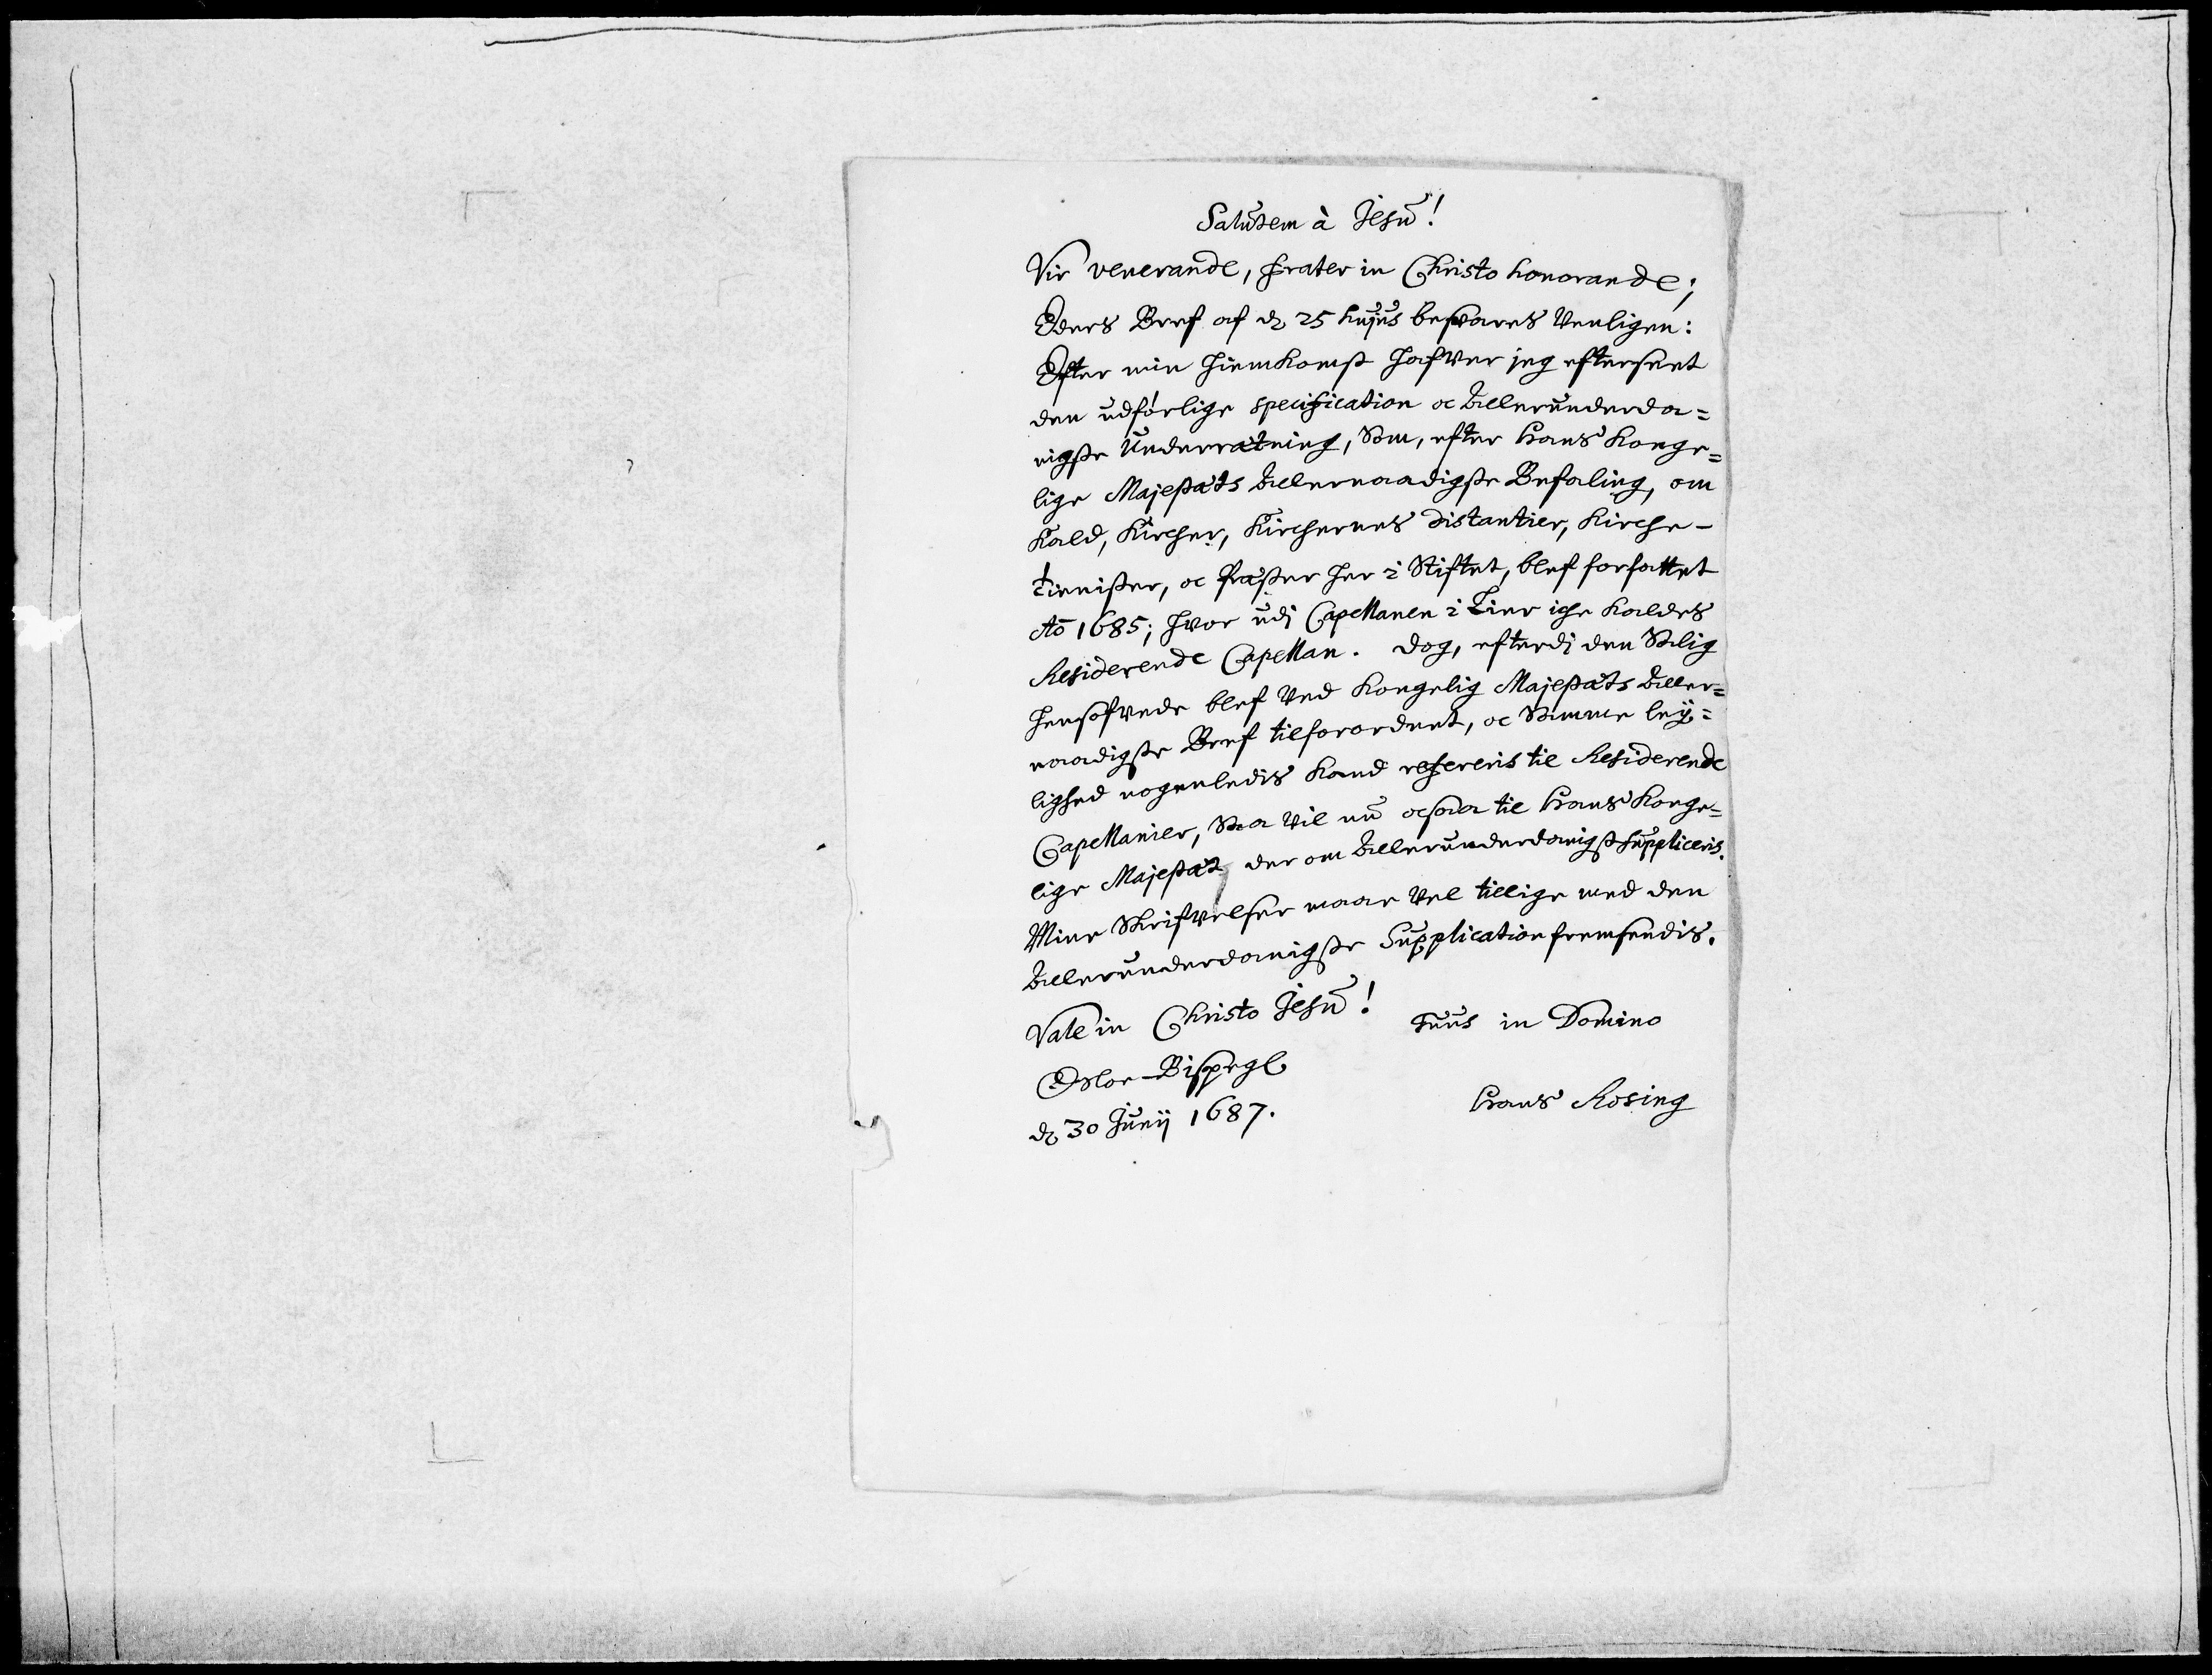 Salutem à Jesu!
Vir venerande, frater in Christo honorande;
Eders Bref af dn 25 hujus besvares venligen:
Efter min Hiemkomst hafver jeg efterseet
den udførlige specification oc Allerunderda=
nigste Underrætning, Som, efter Hans Konge=
lige Majestæts Allernaadigste Befaling, om
Kald, Kircher, Kirchernes distantier, Kirche-
tienister, oc Præster her i Stiftet, blef forfattet
Aō 1685; hvor udj Capellanen i Lier iche kaldes
Residerende Capellan. Dog, efterdj den Salig
hensofvede blef Ved Kongelig Majestæts Aller=
naadigste Bref tilforordnet, oc Samme ley=
lighed nogenledis kand refereris til Residerende
Capellanier, Saa Vil nu ocsaa til Hans Konge=
lige Majestæt der om Allerunderdanigst suppliceris.
Mine Skrifvelser maae Vel tillige med den
Allerunderdanigste Supplication fremsendis.
Vale in Christo Jesu!
Tuus in Domino
Osloe-Bispegl
Hans Rosing
dn 30 Junij 1687.